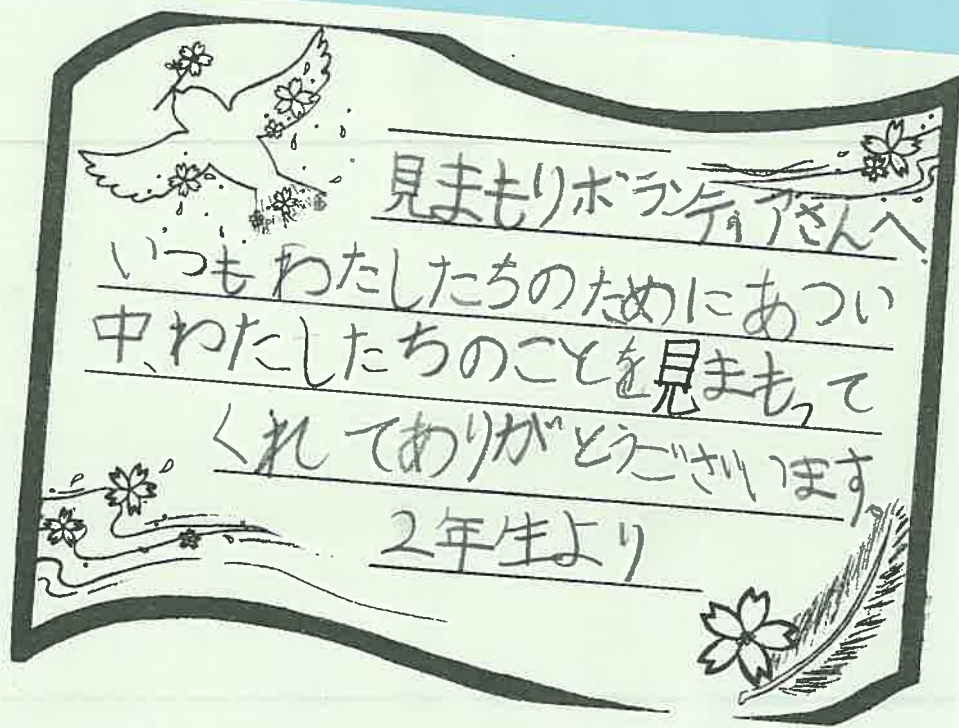 見まもりボランティアさんへ
いつもわたしたちのためにあつい
中、わたしたちのことを見まもって
くれてありがとうございます。
2年生より